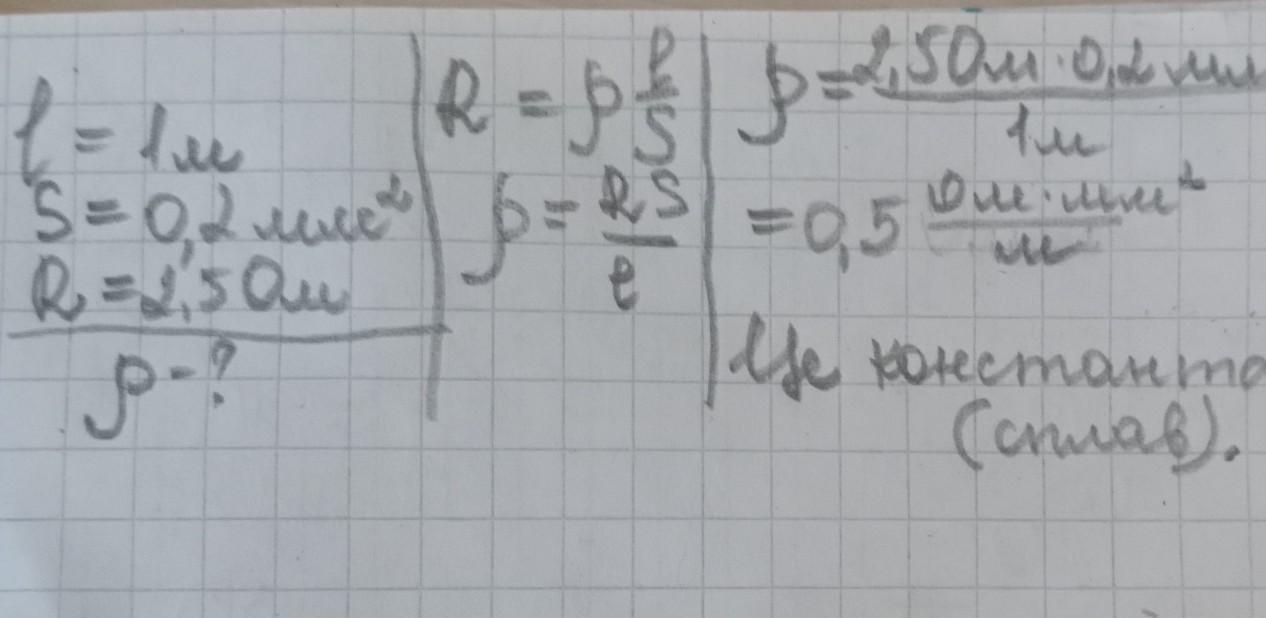 l = 1м
S = 0,2 мм²
R = 2,5 Ом
ρ - ?
R = ρ l/S
ρ = RS/l
ρ = 2,5 Ом · 0,2 мм / 1м
= 0,5 Ом · мм²/м
Це константа
(сплав).